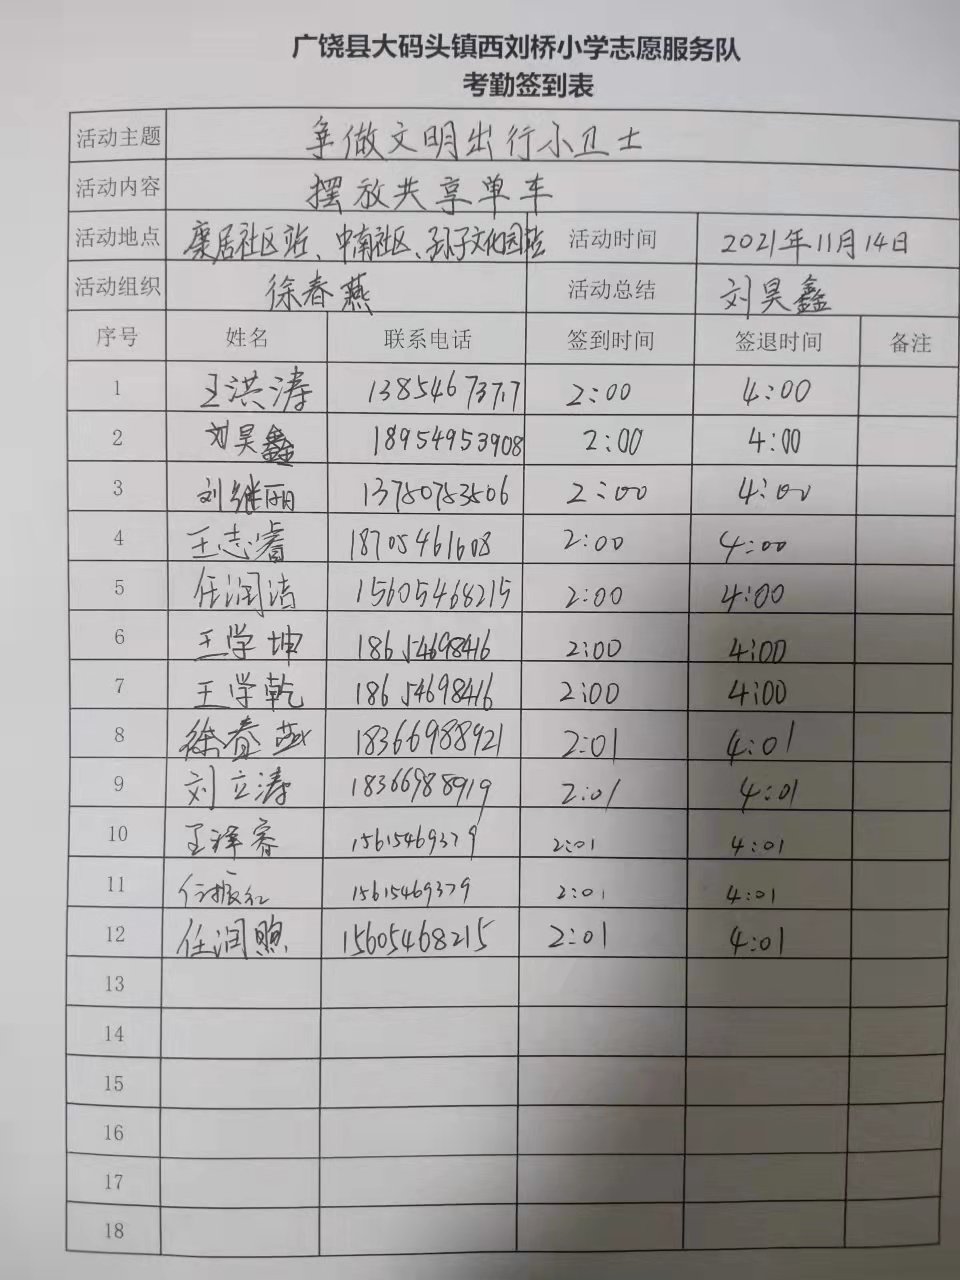 广饶县大码头镇西刘桥小学志愿服务队
考勤签到表
活动主题 争做文明出行小卫士
活动内容 摆放共享单车
活动地点 康居社区站、中南社区、孙子文化园站 活动时间 2021年11月14日
活动组织 徐春燕 活动总结 刘昊鑫
序号 姓名 联系电话 签到时间 签退时间 备注
1 王洪涛 13854673717 2:00 4:00
2 刘昊鑫 18954953908 2:00 4:00
3 刘继丽 2:00 4:00
4 王志睿 18705461608 2:00 4:00
5 任润洁 15605468215 2:00 4:00
6 王学坤 18654698416 2:00 4:00
7 王学乾 18654698416 2:00 4:00
8 徐春燕 18366988921 2:01 4:01
9 刘立涛 18366988919 2:01 4:01
10 王泽睿 15615469379 2:01 4:01
11 任振红 15615469379 2:01 4:01
12 任润煦 15605468215 2:01 4:01
13
14
15
16
17
18